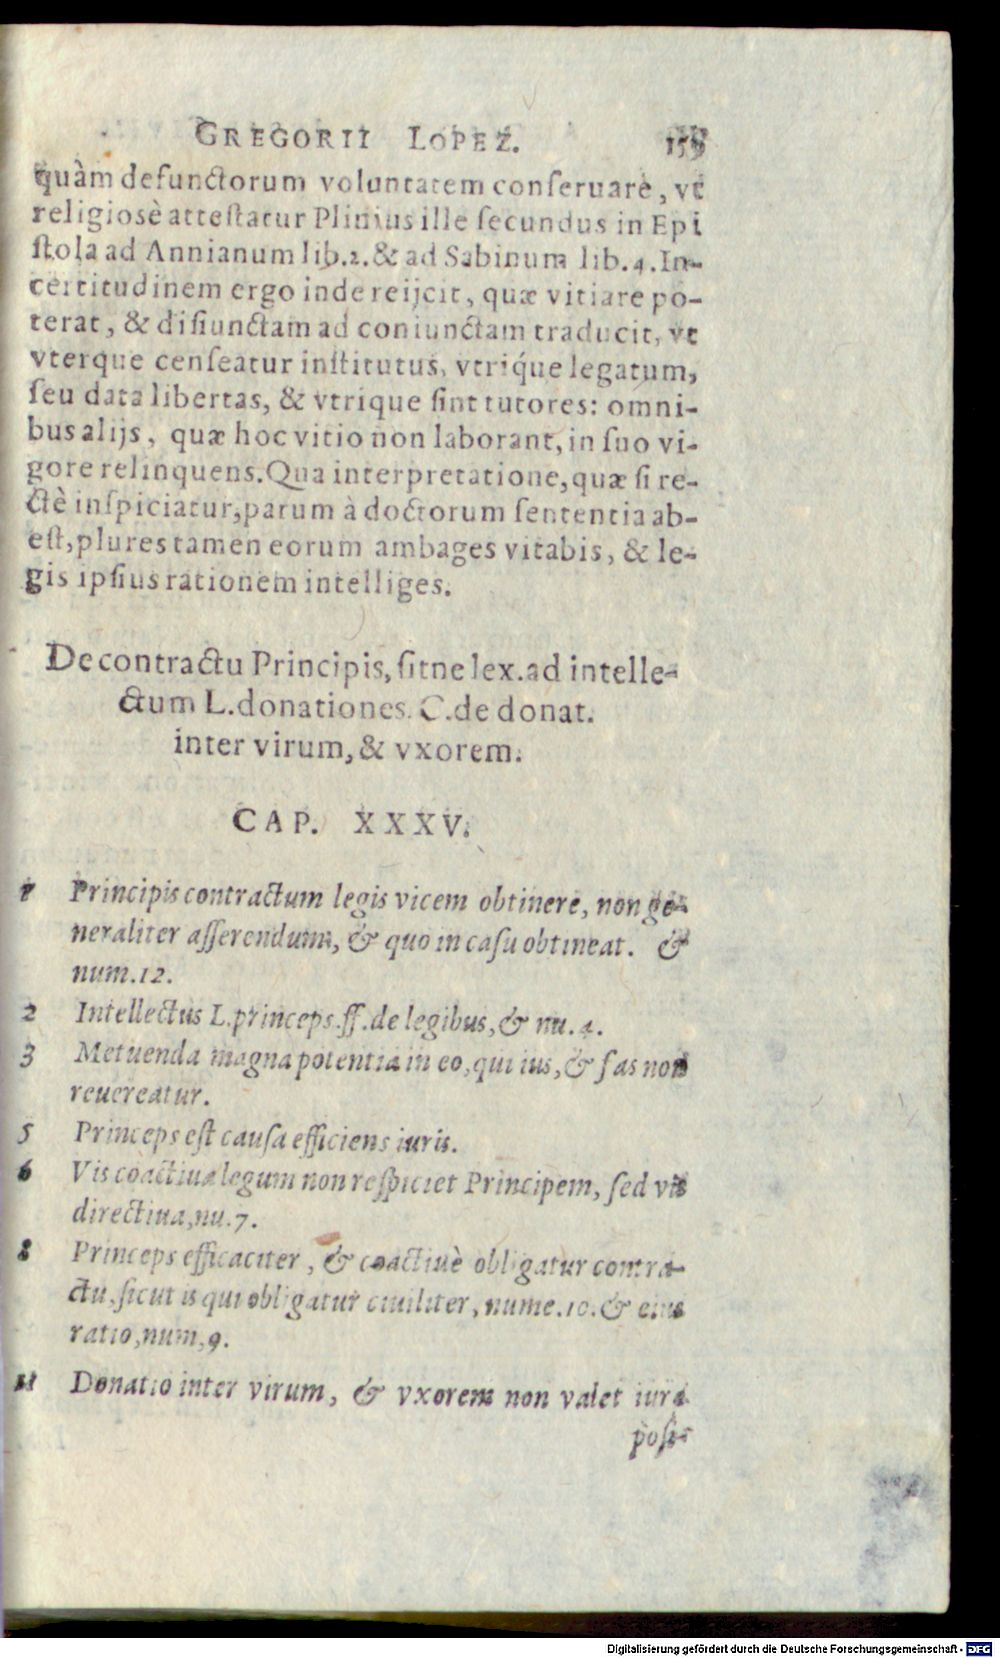 GREGORII LOPEZ. 159
quàm defunctorum voluntatem conſeruare, vt
religiosè atteſtatur Plinius ille ſecundus in Epi
ſtola ad Annianum lib.2.& ad Sabinum lib.4.In-
certitudinem ergo inde reijcit, quæ vitiare po-
terat, & diſiunctam ad coniunctam traducit, vt
vterque cenſeatur inſtitutus, vtriq́ue legatum,
ſeu data libertas, & vtrique ſint tutores: omni-
bus alijs, quæ hoc vitio non laborant, in ſuo vi-
gore relinquens. Qua interpretatione, quæ ſi re-
ctè inſpiciatur, parum à doctorum ſententia ab-
eſt, plures tamen eorum ambages vitabis, & le-
gis ipſius rationem intelliges.
De contractu Principis, ſitne lex. ad intelle-
ctum L.donationes. C.de donat.
inter virum, & vxorem.
CAP. XXXV.
1 Principis contractum legis vicem obtinere, non ge-
neraliter aſſerendum, & quo in caſu obtineat. &
num.12.
2 Intellectus L.princeps.ff.de legibus, & nu.4.
3 Metuenda magna potentia in eo, qui ius, & fas non
reuereatur.
5 Princeps eſt cauſa efficiens iuris.
6 Vis coactiua legum non reſpiciet Principem, ſed vis
directiua, nu.7.
8 Princeps efficaciter, & coactiuè obligatur contra-
ctu, ſicut is qui obligatur ciuiliter, nume.10.& eius
ratio, num.9.
11 Donatio inter virum, & vxorem non valet iura
poſt-
Digitalisierung gefördert durch die Deutsche Forschungsgemeinschaft - DFG